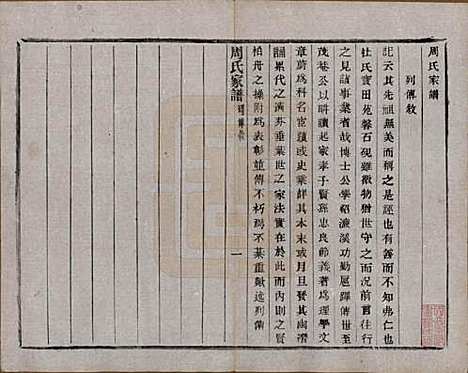 周氏家譜
列傳敘
記云其先祖無美而稱之是誣也有善而不知弗仁也
杜氏寶田范磐石硯雖微物猶世守之而况前言往行
之見諸事業者故博士公學紹濂溪功勤扈蹕傳世至
茂菴公以耕讀起家孝子賢孫忠良節義著為理學文
章蔚為科名宦績或史乘詳其本末或月旦發其幽潛
誦累代之清芬垂葉世之家法實在於此而內則之賢
柏舟之操附為表彰並傳不朽焉不綦重歟述列傳
周氏家譜
一